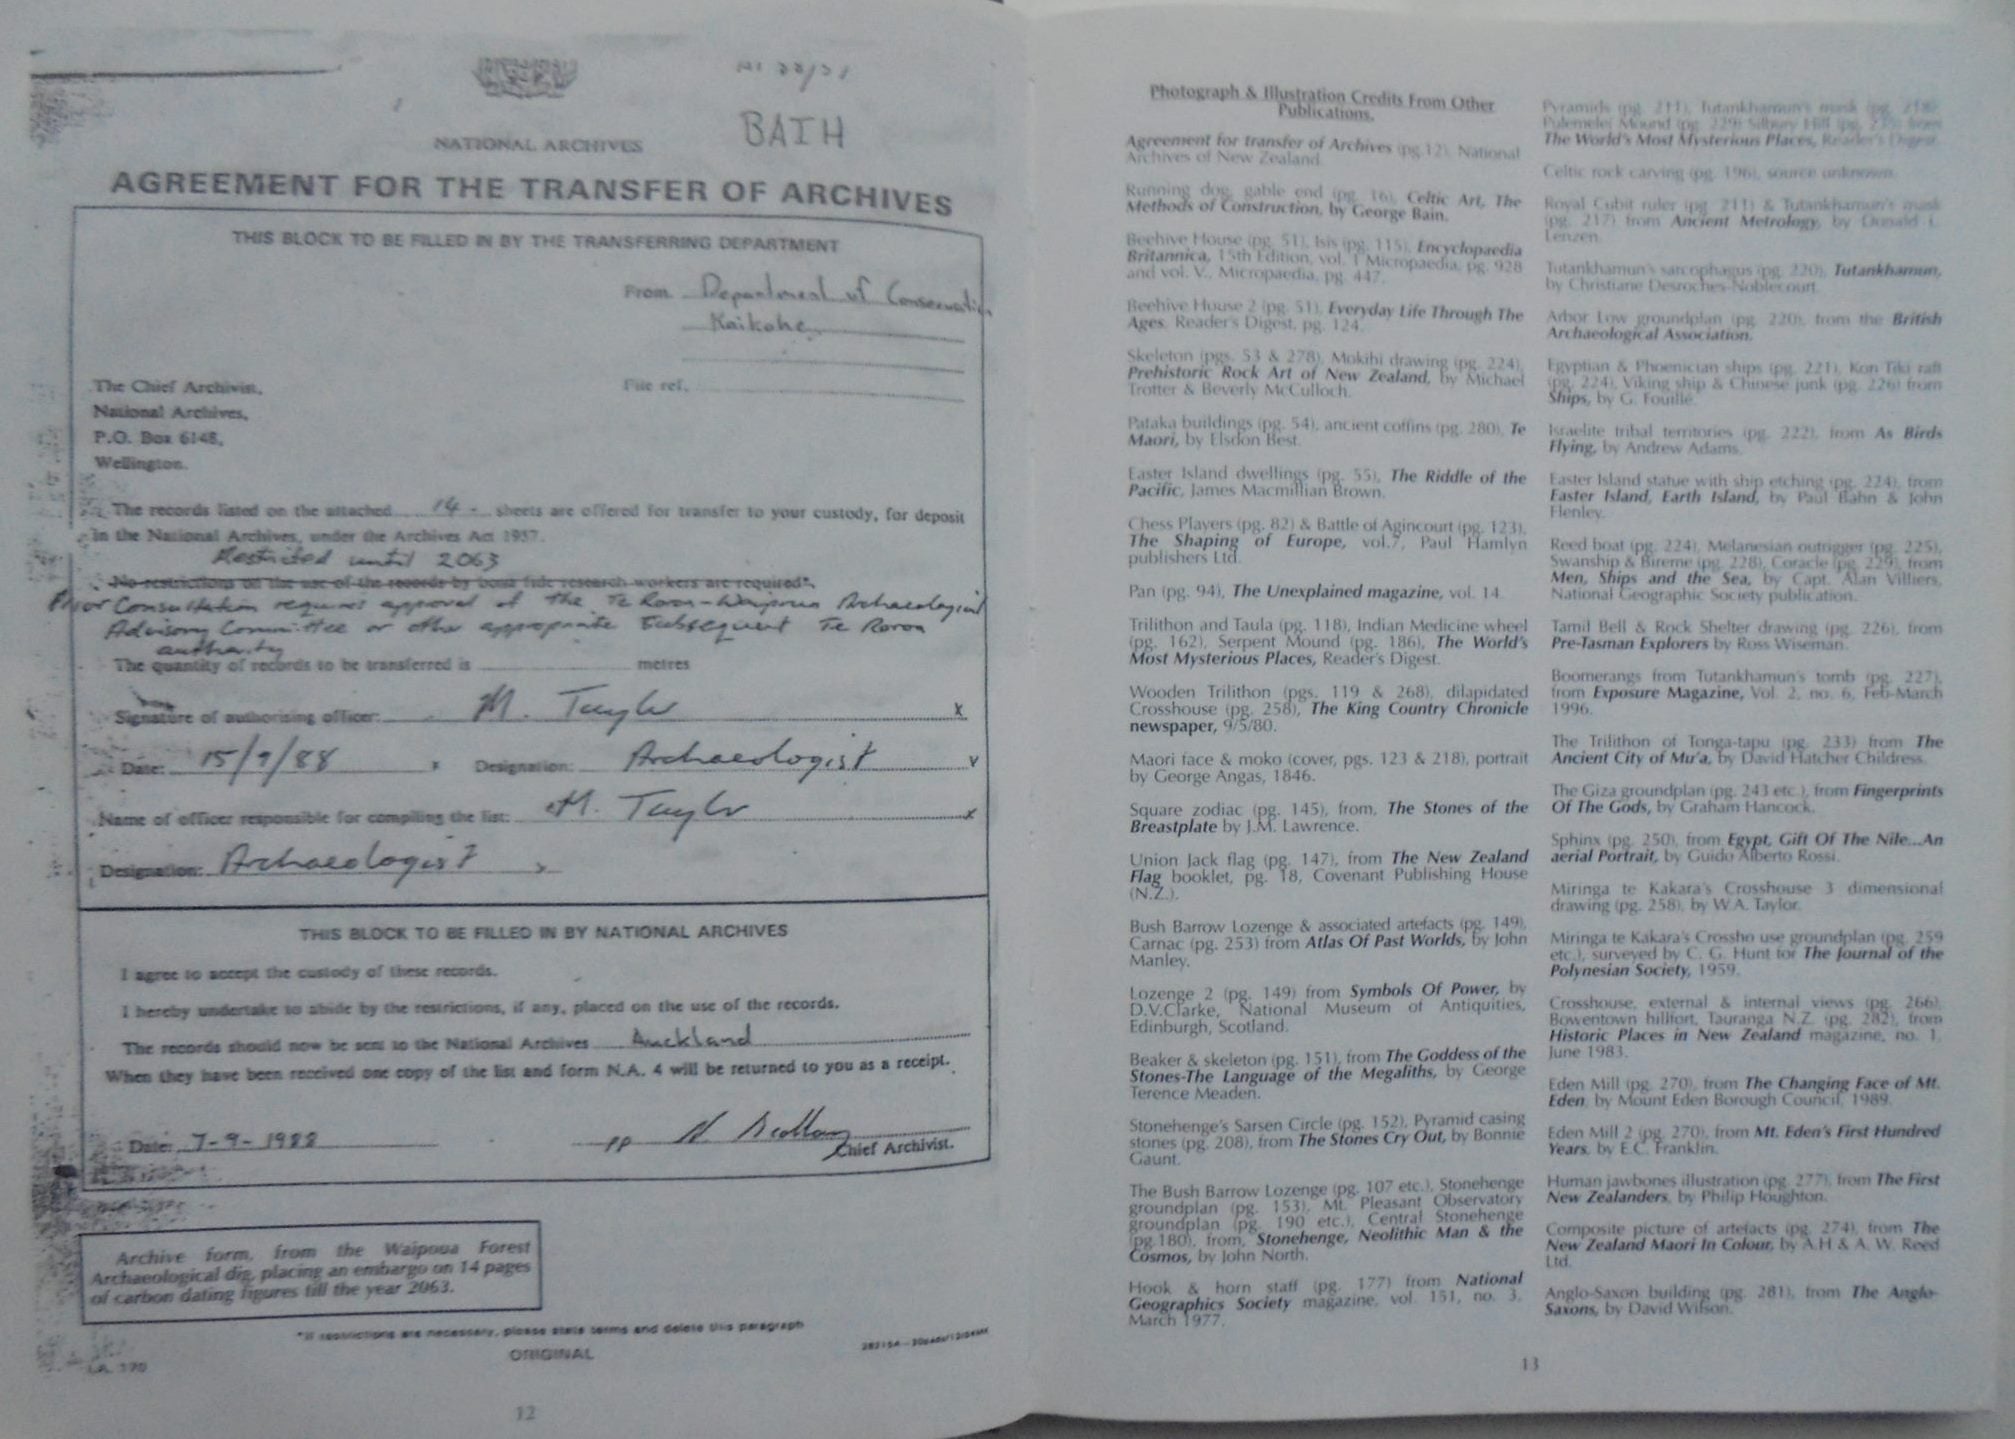 BATH
NATIONAL ARCHIVES
AGREEMENT FOR THE TRANSFER OF ARCHIVES
THIS BLOCK TO BE FILLED IN BY THE TRANSFERRING DEPARTMENT
From Department of Conservation
Kaikohe
The Chief Archivist,
National Archives,
P.O. Box 6148,
Wellington.
File ref.
The records listed on the attached 14 - sheets are offered for transfer to your custody, for deposit
in the National Archives, under the Archives Act 1957.
Restricted until 2063
No restrictions on the use of the records by bona fide research workers are required*.
Prior Consultation requires approval of the Te Roroa-Waipoua Archaeological
Advisory Committee or other appropriate subsequent Te Roroa
authority
The quantity of records to be transferred is metres
Signature of authorising officer: M. Taylor x
Date: 15/9/88 Designation: Archaeologist
Name of officer responsible for compiling the list: M. Taylor x
Designation: Archaeologist
THIS BLOCK TO BE FILLED IN BY NATIONAL ARCHIVES
I agree to accept the custody of these records.
I hereby undertake to abide by the restrictions, if any, placed on the use of the records.
The records should now be sent to the National Archives Auckland
When they have been received one copy of the list and form N.A. 4 will be returned to you as a receipt.
Date: 7-9-1988 pp
Chief Archivist.
Archive form, from the Waipoua Forest
Archaeological dig, placing an embargo on 14 pages
of carbon dating figures till the year 2063.
*If restrictions are necessary, please state terms and delete this paragraph
ORIGINAL
12
Photograph & Illustration Credits From Other
Publications.
Agreement for transfer of Archives (pg.12), National
Archives of New Zealand.
Running dog, gable end (pg. 16), Celtic Art, The
Methods of Construction, by George Bain.
Beehive House (pg. 51), Isis (pg. 115), Encyclopaedia
Britannica, 15th Edition, vol. 1 Micropaedia, pg. 928
and vol. V., Micropaedia, pg. 447.
Beehive House 2 (pg. 51), Everyday Life Through The
Ages, Reader's Digest, pg. 124.
Skeleton (pgs. 53 & 278), Mokihi drawing (pg. 224),
Prehistoric Rock Art of New Zealand, by Michael
Trotter & Beverly McCulloch.
Pataka buildings (pg. 54), ancient coffins (pg. 280), Te
Maori, by Elsdon Best.
Easter Island dwellings (pg. 55), The Riddle of the
Pacific, James Macmillian Brown.
Chess Players (pg. 82) & Battle of Agincourt (pg. 123),
The Shaping of Europe, vol.7, Paul Hamlyn
publishers Ltd.
Pan (pg. 94), The Unexplained magazine, vol. 14.
Trilithon and Taula (pg. 118), Indian Medicine wheel
(pg. 162), Serpent Mound (pg. 186), The World's
Most Mysterious Places, Reader's Digest.
Wooden Trilithon (pgs. 119 & 268), dilapidated
Crosshouse (pg. 258), The King Country Chronicle
newspaper, 9/5/80.
Maori face & moko (cover, pgs. 123 & 218), portrait
by George Angas, 1846.
Square zodiac (pg. 145), from, The Stones of the
Breastplate by J.M. Lawrence.
Union Jack flag (pg. 147), from The New Zealand
Flag booklet, pg. 18, Covenant Publishing House
(N.Z.).
Bush Barrow Lozenge & associated artefacts (pg. 149),
Carnac (pg. 253) from Atlas Of Past Worlds, by John
Manley.
Lozenge 2 (pg. 149) from Symbols Of Power, by
D.V.Clarke, National Museum of Antiquities,
Edinburgh, Scotland.
Beaker & skeleton (pg. 151), from The Goddess of the
Stones-The Language of the Megaliths, by George
Terence Meaden.
Stonehenge's Sarsen Circle (pg. 152), Pyramid casing
stones (pg. 208), from The Stones Cry Out, by Bonnie
Gaunt.
The Bush Barrow Lozenge (pg. 107 etc.), Stonehenge
groundplan (pg. 153), Mt. Pleasant Observatory
groundplan (pg. 190 etc.), Central Stonehenge
(pg.180), from, Stonehenge, Neolithic Man & the
Cosmos, by John North.
Hook & horn staff (pg. 177) from National
Geographics Society magazine, vol. 151, no. 3,
March 1977.
Pyramids (pg. 211), Tutankhamun's mask (pg. 218),
Pulemelei Mound (pg. 229) Silbury Hill from
The World's Most Mysterious Places, Reader's Digest.
Celtic rock carving (pg. 196), source unknown.
Royal Cubit ruler (pg. 211) & Tutankhamun's mask
(pg. 217) from Ancient Metrology, by Donald L.
Lenzen.
Tutankhamun's sarcophagus (pg. 220), Tutankhamun,
by Christiane Desroches-Noblecourt.
Arbor Low groundplan (pg. 220), from the British
Archaeological Association.
Egyptian & Phoenician ships (pg. 221), Kon Tiki raft
(pg. 224), Viking ship & Chinese junk (pg. 226) from
Ships, by G. Fouillé.
Israelite tribal territories (pg. 222), from As Birds
Flying, by Andrew Adams.
Easter Island statue with ship etching (pg. 224), from
Easter Island, Earth Island, by Paul Bahn & John
Flenley.
Reed boat (pg. 224), Melanesian outrigger (pg. 225),
Swanship & Bireme (pg. 228), Coracle (pg. 229), from
Men, Ships and the Sea, by Capt. Alan Villiers,
National Geographic Society publication.
Tamil Bell & Rock Shelter drawing (pg. 226), from
Pre-Tasman Explorers by Ross Wiseman.
Boomerangs from Tutankhamun's tomb (pg. 227),
from Exposure Magazine, Vol. 2, no. 6, Feb-March
1996.
The Trilithon of Tonga-tapu (pg. 233) from The
Ancient City of Mu'a, by David Hatcher Childress.
The Giza groundplan (pg. 243 etc.), from Fingerprints
Of The Gods, by Graham Hancock.
Sphinx (pg. 250), from Egypt, Gift Of The Nile...An
aerial Portrait, by Guido Alberto Rossi.
Miringa te Kakara's Crosshouse 3 dimensional
drawing (pg. 258), by W.A. Taylor.
Miringa te Kakara's Crossho use groundplan (pg. 259
etc.), surveyed by C. G. Hunt for The Journal of the
Polynesian Society, 1959.
Crosshouse, external & internal views (pg. 266),
Bowentown hillfort, Tauranga N.Z. (pg. 282), from
Historic Places in New Zealand magazine, no. 1,
June 1983.
Eden Mill (pg. 270), from The Changing Face of Mt.
Eden, by Mount Eden Borough Council, 1989.
Eden Mill 2 (pg. 270), from Mt. Eden's First Hundred
Years, by E.C. Franklin.
Human jawbones illustration (pg. 277), from The First
New Zealanders, by Philip Houghton.
Composite picture of artefacts (pg. 274), from The
New Zealand Maori In Colour, by A.H & A. W. Reed
Ltd.
Anglo-Saxon building (pg. 281), from The Anglo-
Saxons, by David Wilson.
13